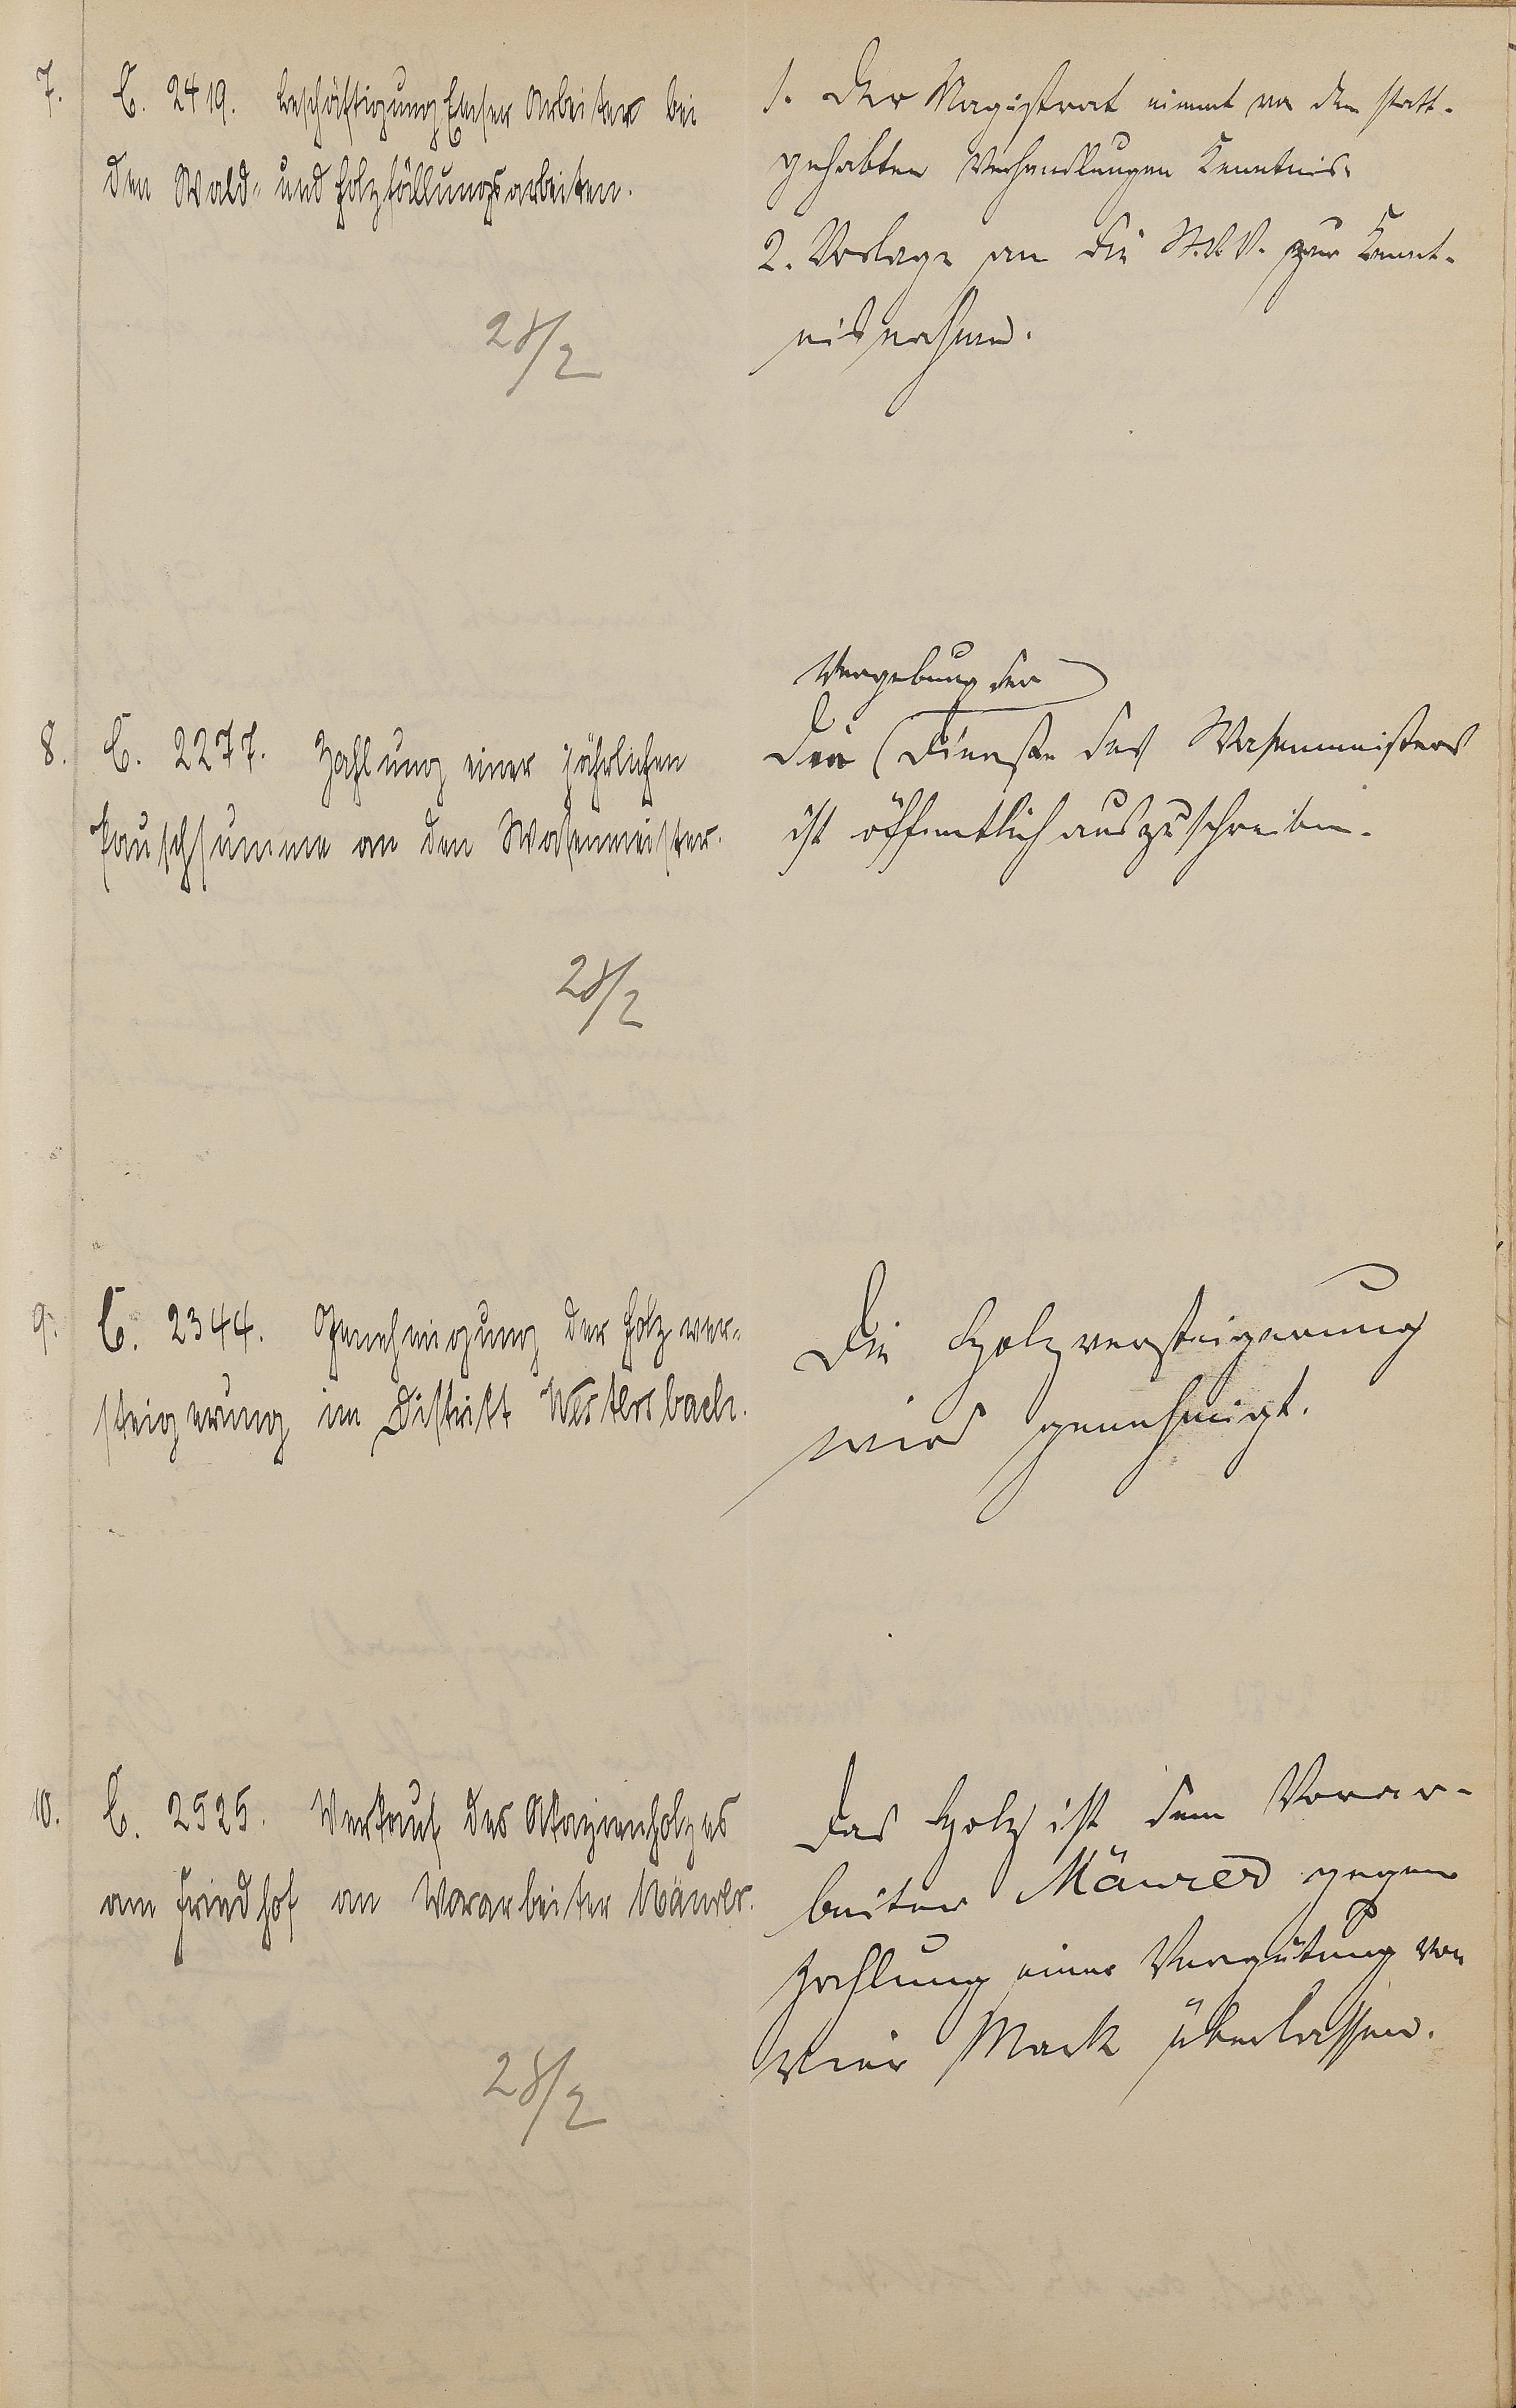 7. C. 2419. Beschäftigung Emser Arbeiter bei
den Wald- und Holzfällungsarbeiten.
28/2
1. Der Magistrat nimmt von den statt-
gehabten Verhandlungen Kenntnis.
2. Vorlage an die St.V.V. zur Kennt-
nisnahme.
8. C. 2277. Zahlung einer jährlichen
Pauschsumme an den Wasenmeister.
28/2
Vergebung der
Die Dienste des Wasenmeisters
ist öffentlich auszuschreiben.
9. C. 2344. Genehmigung der Holzver-
steigerung im Distrikt Westersbach.
Die Holzversteigerung
wird genehmigt.
10. C. 2525. Verkauf des Akazienholzes
am Friedhof an Vorarbeiter Mäurer.
28/2
Das Holz ist dem Vorar-
beiter Mäurer gegen
Zahlung einer Vergütung von
vier Mark überlassen.